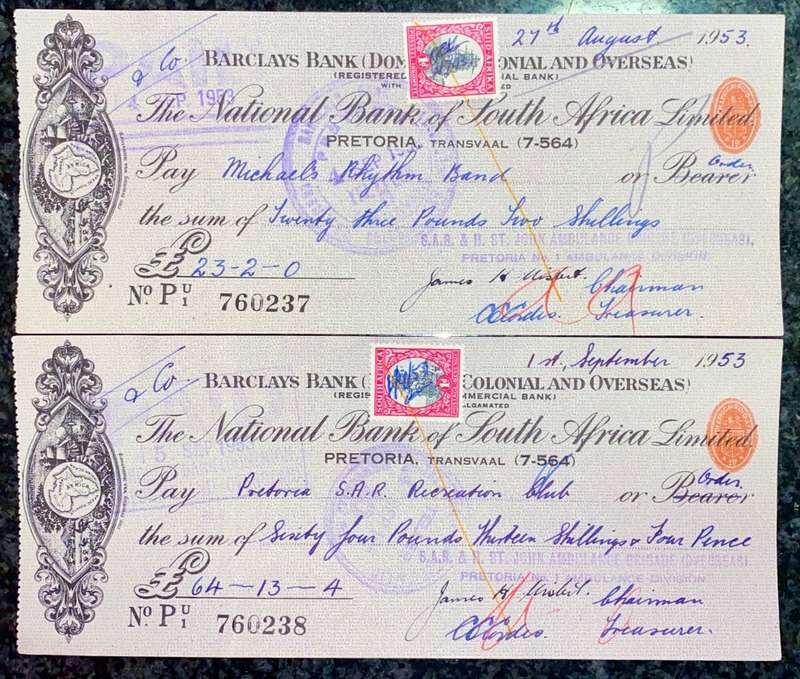 & Co.
27th August 1953.
BARCLAYS BANK (DOM OLONIAL AND OVERSEAS)
(REGISTERED IAL BANK)
WITH ED
SUID-AFRIKA
4 SEP 1953
The National Bank of South Africa Limited.
PRETORIA, TRANSVAAL (7-564)
Pay Michaels Rhythm Band or Bearer Order
the sum of Twenty three Pounds Two Shillings
S.A.R. & H. ST. JOHN AMBULANCE BRIGADE (OVERSEAS),
PRETORIA No. 1 AMBULANCE DIVISION
£ 23-2-0
James H Chairman
Treasurer.
No. P U/1 760237
& Co.
1st, September 1953
BARCLAYS BANK ( COLONIAL AND OVERSEAS)
(REGIS MMERCIAL BANK)
LGAMATED
SOUTH AFRICA
15 SEP 1953
The National Bank of South Africa Limited.
PRETORIA, TRANSVAAL (7-564)
Pay Pretoria S.A.R. Recreation Club or Bearer Order
the sum of Sixty four Pounds Thirteen Shillings & Four Pence
S.A.R. & H. ST. JOHN AMBULANCE BRIGADE (OVERSEAS),
PRETORIA No. 1 AMBULANCE DIVISION
£ 64-13-4
James H Chairman
Treasurer.
No. P U/1 760238